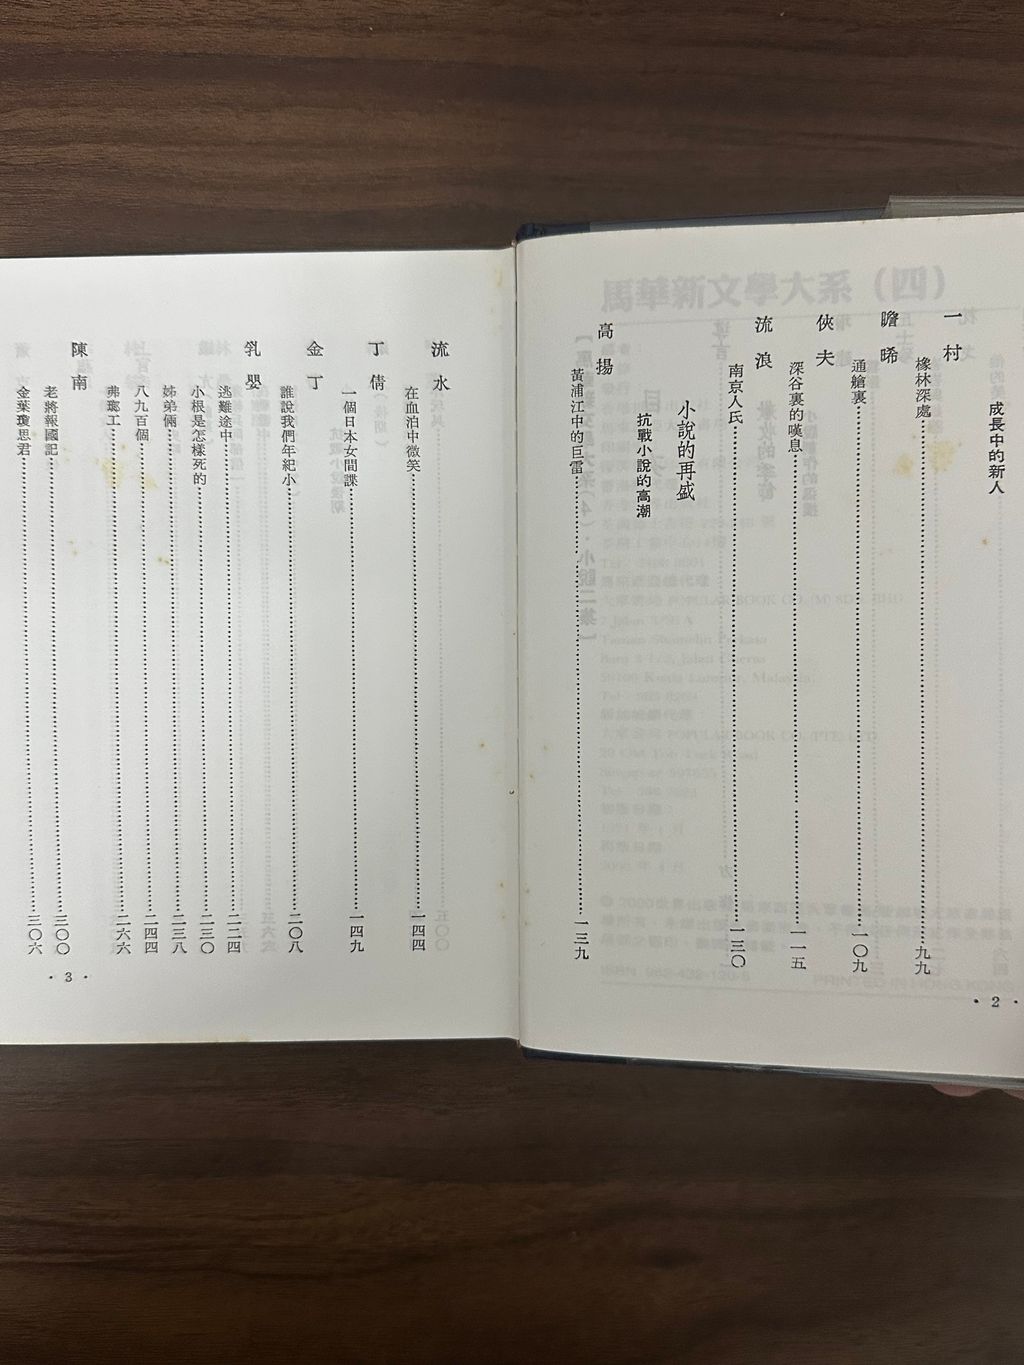 成長中的新人
一村
橡林深處……九九
瞻晞
通艙裏……一〇九
俠夫
深谷裏的嘆息……一一五
流浪
南京人氏……一三〇
小說的再盛
抗戰小說的高潮
高揚
黃浦江中的巨雷……一三九
·2·
流水
在血泊中微笑……一四四
丁倩
一個日本女間諜……一四九
金丁
誰說我們年紀小……二〇八
乳嬰
逃難途中……二二四
小根是怎樣死的……二三〇
姊弟倆……二三八
八九百個……二四四
弗瑯工……二六六
陳南
老將報國記……三〇〇
金葉瓊思君……三〇六
·3·
馬華新文學大系（四）